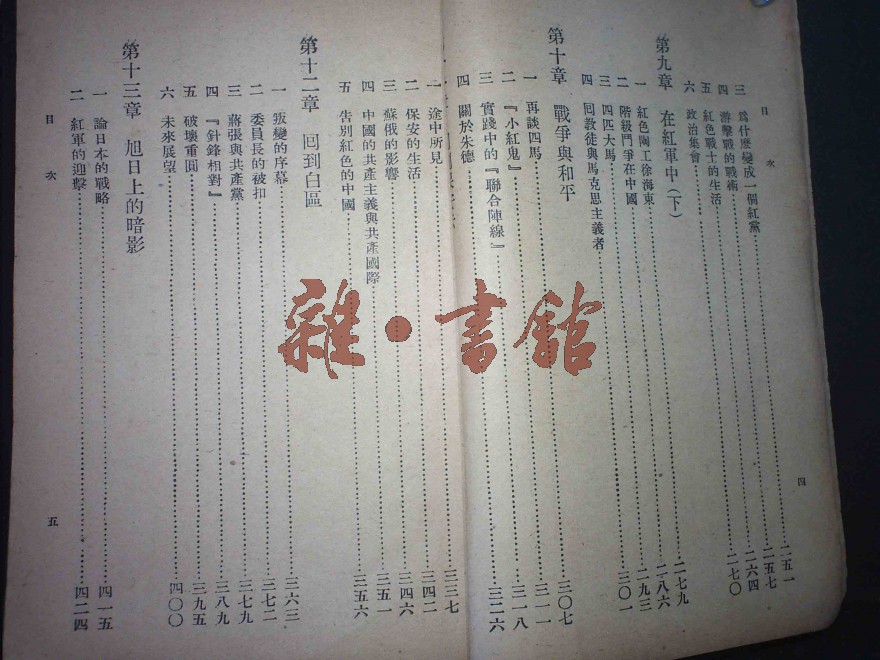 目次
三 爲什麽變成一個紅黨……二五一
四 游擊戰的戰術……二五七
五 紅色戰士的生活……二六四
六 政治集會……二七〇
第九章 在紅軍中(下)
一 紅色陶工徐海東……二七九
二 階級鬥爭在中國……二八六
三 四大馬……二九三
四 回教徒與馬克思主義者……三〇一
第十章 戰爭與和平
一 再談四馬……三〇七
二 『小紅鬼』……三一一
三 實踐中的『聯合陣線』……三一八
四 關於朱德……三二六
四
一 途中所見……三三七
二 保安的生活……三四二
三 蘇俄的影響……三四六
四 中國的共產主義與共產國際……三五一
五 告別紅色的中國……三五六
第十二章 回到白區
一 叛變的序幕……三六三
二 委員長的被扣……三七二
三 蔣張與共產黨……三七九
四 『針鋒相對』……三八九
五 破壞重圓……三九五
六 未來展望……四〇〇
第十三章 旭日上的暗影
一 論日本的戰略……四一五
二 紅軍的迎擊……四二四
目次
五
雜·書館